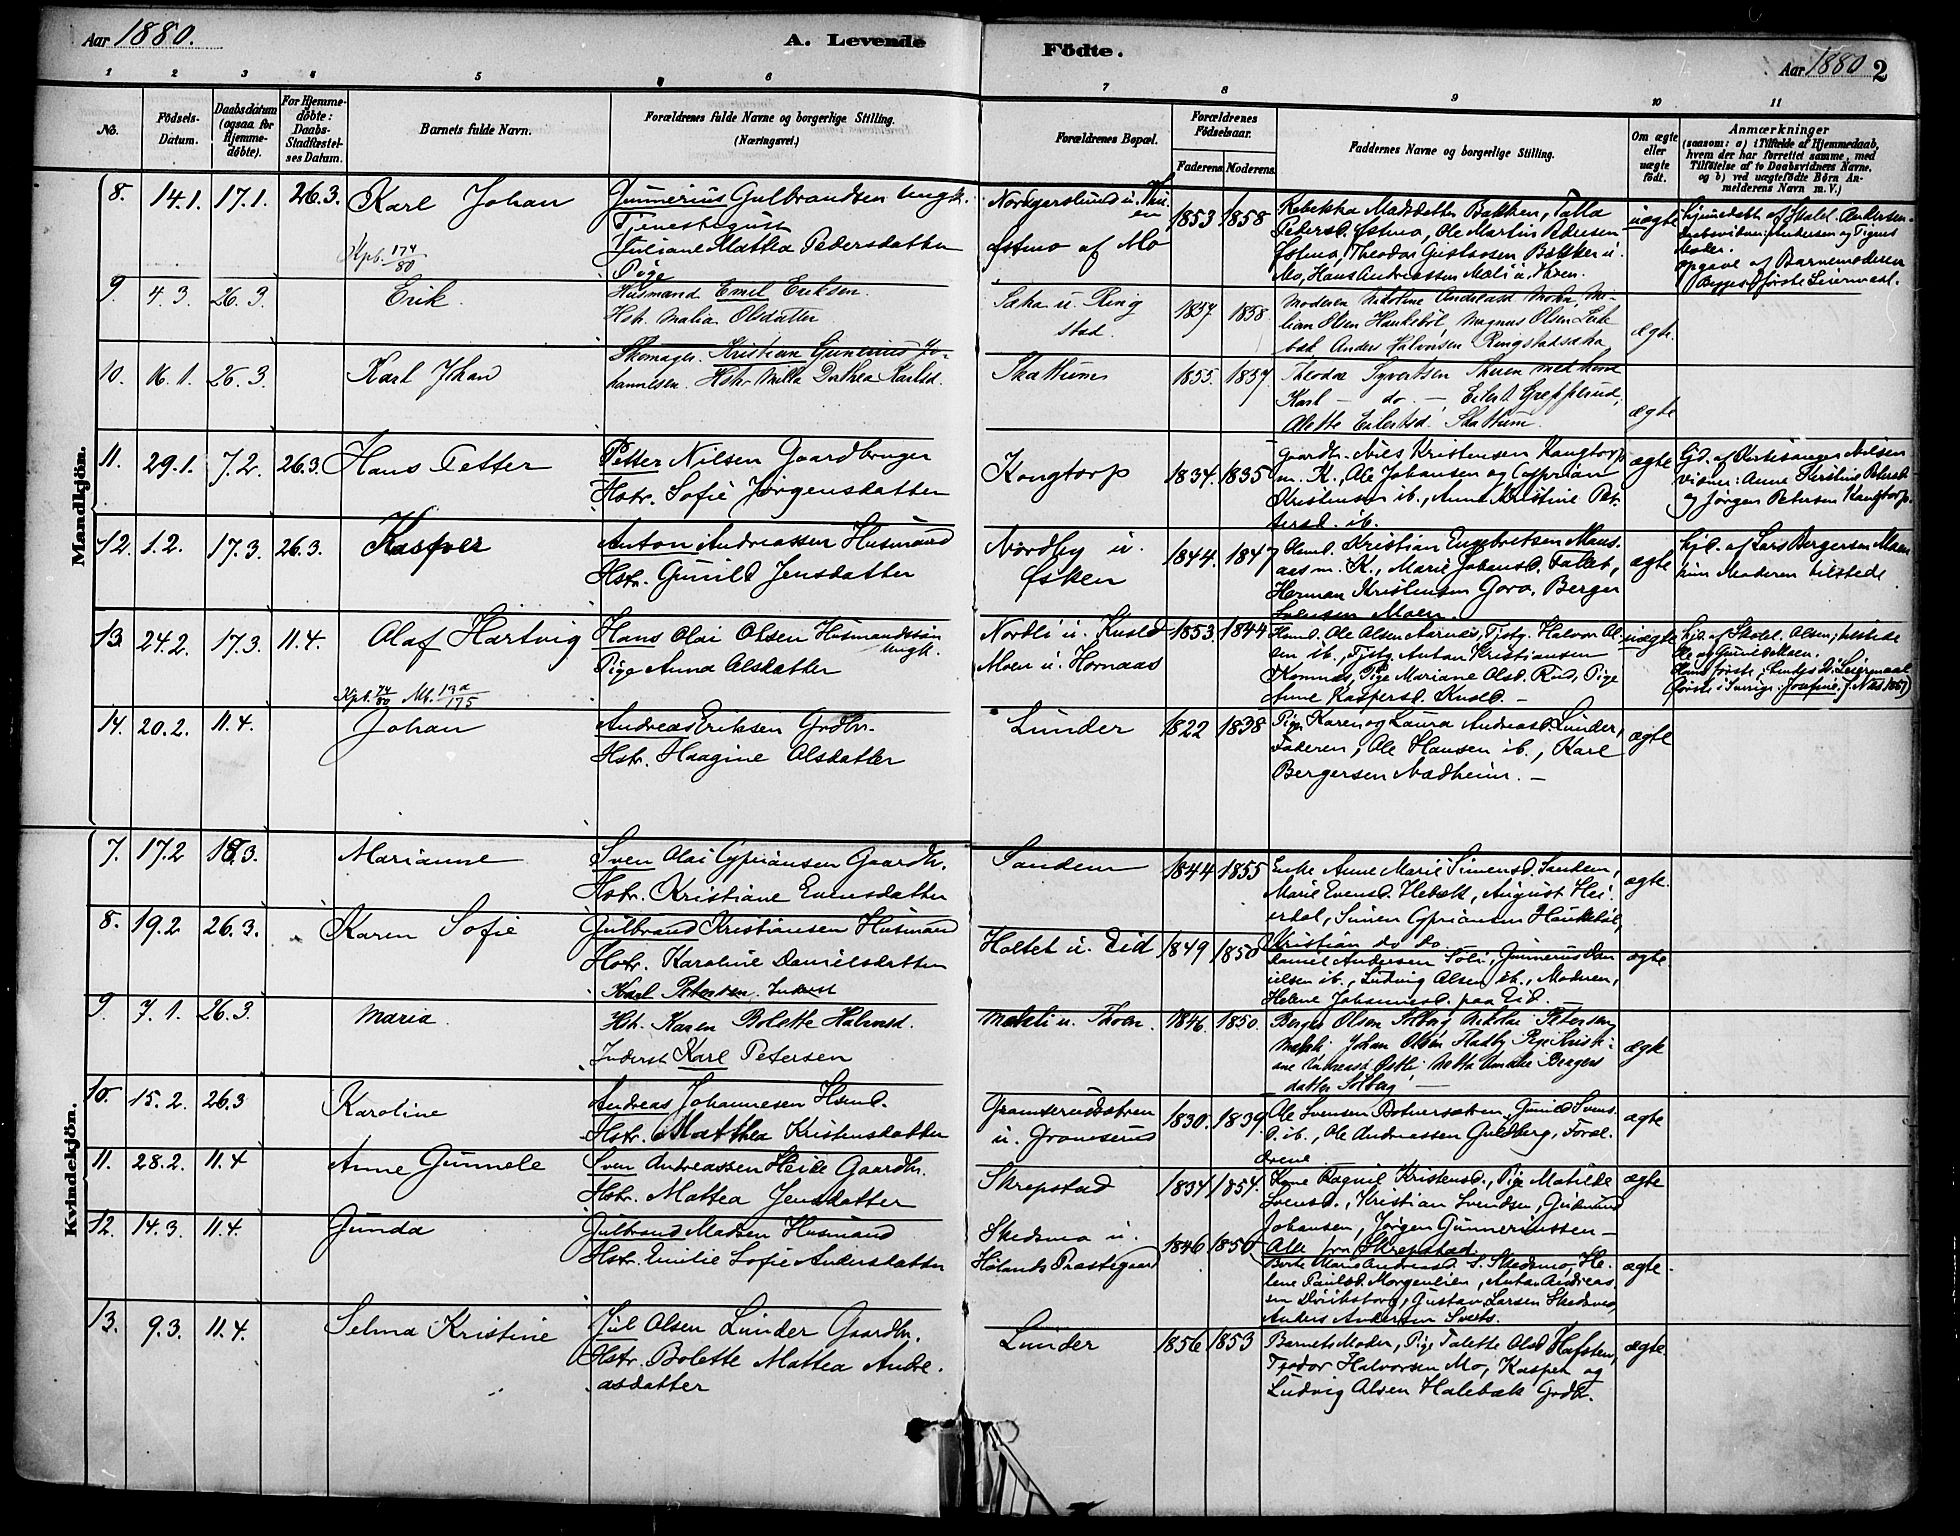 Aar 1880.
A. Levende
Födte.
Aar 1880 2
1 2 3 4 5 6 7 8 9 10 11
No.
Födsels-
Datum.
Daabsdatum
(ogsaa for
Hjemme-
döbte).
For Hjemme-
döbte:
Daabs-
Stadfæstel-
ses Datum.
Barnets fulde Navn.
Forældrenes fulde Navne og borgerlige Stilling.
(Næringsvei.)
Forældrenes Bopæl.
Forældrenes
Födselsaar.
Faderens Moderens
Faddernes Navne og borgerlige Stilling.
Om ægte
eller
uægte
födt.
Anmærkninger
(saasom: a) i Tilfælde af Hjemmedaab,
hvem der har forrettet samme, med
Tilföielse af to Daabsvidners Navne,
og b) ved uægtefödte Börn An-
melderens Navn m. V.)
Mandkjön.
8. 14.1. 17.1. 26.3. Karl Johan
Kpb. 174/80
Gunnerius Gulbrandsen Ungk.
Tjenestegut
Juliane Mathea Pedersdatter
Pige
Østmo af Mo
1853 1858
Rebekka Madsdatter Bakken, Talla
Pedersd. Østmo, Ole Martin Pedersen
Østmo, Theodor Gustavsen Bakken u.
Mo, Hans Andreassen Mæli u. Thoen.
uægte
Hjemmedøbt af Skolel. Andersen
Moder.
opgave af Barnemoderen
Begges første Leiermaal.
9. 4.3. 26.3. Erik.
Husmand Emil Eriksen
Hstr. Malia Olsdatter
Saka u. Ring
stad
1857 1858
Moderen Nikoline Andreasd Mohn, Mi-
lian Olsen Haukebøl, Magnus Olsen Lerk
bæk Anders Halvorsen Ringstadsaka
ægte.
10. 16.1. 26.3. Karl Johan
Skomager. Kristian Gunerius Jo-
hannesen. Hstr Milla Dorthea Karlsd.
Skattum
1855. 1857
Theodor Syvertsen Thuen med kone
Karl — do — Eilert Grepperud,
Alette Eilertsd. Skattum.
ægte
11. 29.1. 7.2. 26.3. Hans Petter
Petter Nilsen Gaardbruger
Hstr. Sofie Jørgensdatter
Kongtorp
1834. 1835
Gaardbr. Niels Kristensen Kongtorp
m. K., Ole Johansen og Cyprian
Kristensen ib., Anne Kristine Pet-
tersd. ib.
ægte
vidner: Anne Kirstine Petersd.
og Jørgen Petersen Kongtorp.
12. 1.2. 17.3. 26.3. Kasper
Anton Andreassen Husmand
Hstr. Gunild Jensdatter
Nordby u.
Øsken
1844. 1847
Husmd. Kristian Engebretsen Maus-
aas m. K., Marie Johansd. Fallet,
Herman Kristensen Gora, Berger
Svensen Moen.
ægte
hjd. af Lars Bergersen Moen
kun Moderen tilstede
13. 24.2. 17.3. 11.4. Olaf Hartvig
Kpb. 74/80 Mb. 13a/175
Hans Olai Olsen Husmandssøn
ungk.
Pige Anna Olsdatter
Nordli u. Kusld
Moen u. Hornaas
1853. 1844
Husmd. Ole Olsen Aarnæs, Tjstg. Halvor Ol-
sen ib., Tjstg. Anton Kristiansen
Komnæs, Pige Mariane Olsd. Rud, Pige
Anne Kaspersd. Kusld. —
uægte
hjd. af Skolel. Olsen, tilstede
Ole og Gunild Moen.
Hans første, hendes 2d. Leiermaal
(første i Sverige. Josefine, f. 1867)
14. 20.2. 11.4. Johan
Andreas Eriksen Grdbr.
Hstr. Haagine Olsdatter
Lunder
1822 1838
Pige Karen og Laura Andreasd. Lunder,
Faderen, Ole Hansen ib., Karl
Bergersen Nadheim. —
ægte
Kvindekjön.
7. 17.2 18.3. Marianne
Sven Olai Cypriansen Gaardbr.
Hstr. Kristiane Evensdatter
Sandem
1844 1855
Enke Anne Marie Simensd. Sandem,
Marie Evensd. Hebæk, August Hei-
erdal, Simen Cypriansen Haukebøl,
Kristian do do.
ægte.
8. 19.2 26.3. Karen Sofie
Gulbrand Kristiansen Husmand
Hstr. Karoline Danielsdatter
Holtet u. Eid
1849 1850
Daniel Andersen Soli, Gunnerius Dan
ielsen ib., Ludvig Olsen ib., Moderen,
Helene Johannesd. paa Eid. —
ægte.
9. 7.1. 26.3. Maria.
Karl Petersen. Inderst
Hstr. Karen Bolette Halvorsd.
Inderst Karl Petersen
Mæli u. Thoen.
1846 1850.
Berger Olsen Solberg Nikolai Petersen
Mæli Johan Olsen Stadby Pige Kristi-
ane Andreasd Østli Netta Amalie Bergers
datter Solberg —
ægte
10. 15.2. 26.3 Karoline
Andreas Johannesen Hsmd.
Hstr. Matthea Kristensdatter
Gramserudsætren
u. Gramserud
1830. 1839
Ole Svensen Botnersætren, Gunild Svens-
d. ib., Ole Andreassen Guldberg, Foræl-
drene.
ægte
11. 28.2. 11.4 Anne Gunnele
Sven Andreassen Heide Gaardbr.
Hstr. Mattea Jensdatter
Skrepstad
1834 1854.
Kone Ragnil Kristensd., Pige Matilde
Svensd., Kristian Svendsen, Gudmund
Johansen, Jørgen Gunneriussen —
Alle fra Skrepstad
ægte
12. 14.3. 11.4. Gunda
Gulbrand Madsen Husmand
Hstr. Emilie Sofie Andersdatter
Skedsmo u.
Hølands Prestegaard
1846 1850
Berte Maria Andreasd. S. Skedsmo, He-
lene Paulsd. Morgenlien, Anton Andreas-
sen Diriksborg, Gustav Larsen Skedsmo,
Anders Andersen Svets.
ægte.
13. 9.3. 11.4. Selma Kristine
Jul Olsen Lunder Gaardbr.
Hstr. Bolette Mattea Andre-
asdatter
Lunder
1856 1853
Barnets Moder, Pige Talette Olsd Hafsten,
Teodor Halvorsen Mo, Kasper og
Ludvig Olsen Halebæk Grdbr.
ægte.